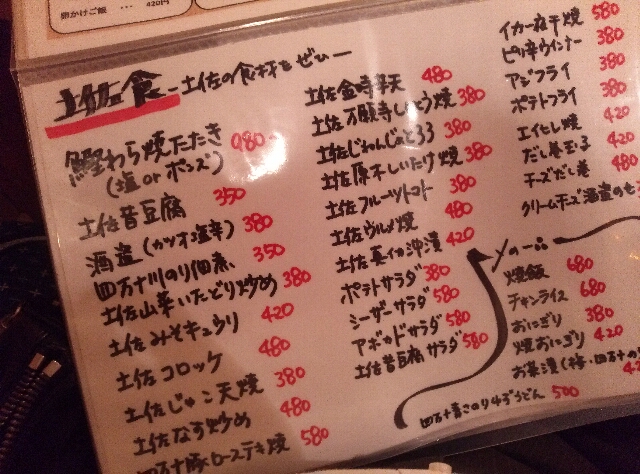 卵かけご飯 … 420円
土佐食 ー土佐の食材をぜひー
鰹わら焼たたき 980
(塩orポンズ)
土佐昔豆腐 350
酒盗(カツオ塩辛) 380
四万十川のり佃煮 350
土佐山菜いたどり炒め 380
土佐みそキュウリ 420
土佐コロッケ 480
土佐じゃこ天焼 380
土佐なす炒め 480
四万十豚ローステキ焼 580
土佐金時芋天 480
土佐万願寺しとう焼 380
土佐じねんじょとろろ 380
土佐原木しいたけ焼 380
土佐フルーツトマト 380
土佐ウルメ焼 480
土佐真イカ沖漬 420
ポテトサラダ 380
シーザーサラダ 580
アボカドサラダ 580
土佐昔豆腐サラダ 580
イカ一夜干焼 580
ピリ辛ウインナー 380
アジフライ 380
ポテトフライ 380
エイヒレ焼 420
だし巻玉子 420
チーズだし巻 480
クリームチーズ酒盗のせ
〆の一品
焼飯 680
チキンライス 680
おにぎり 380
焼おにぎり 420
お茶漬(梅・四万十の
四万十青さのり斗ずうどん 500